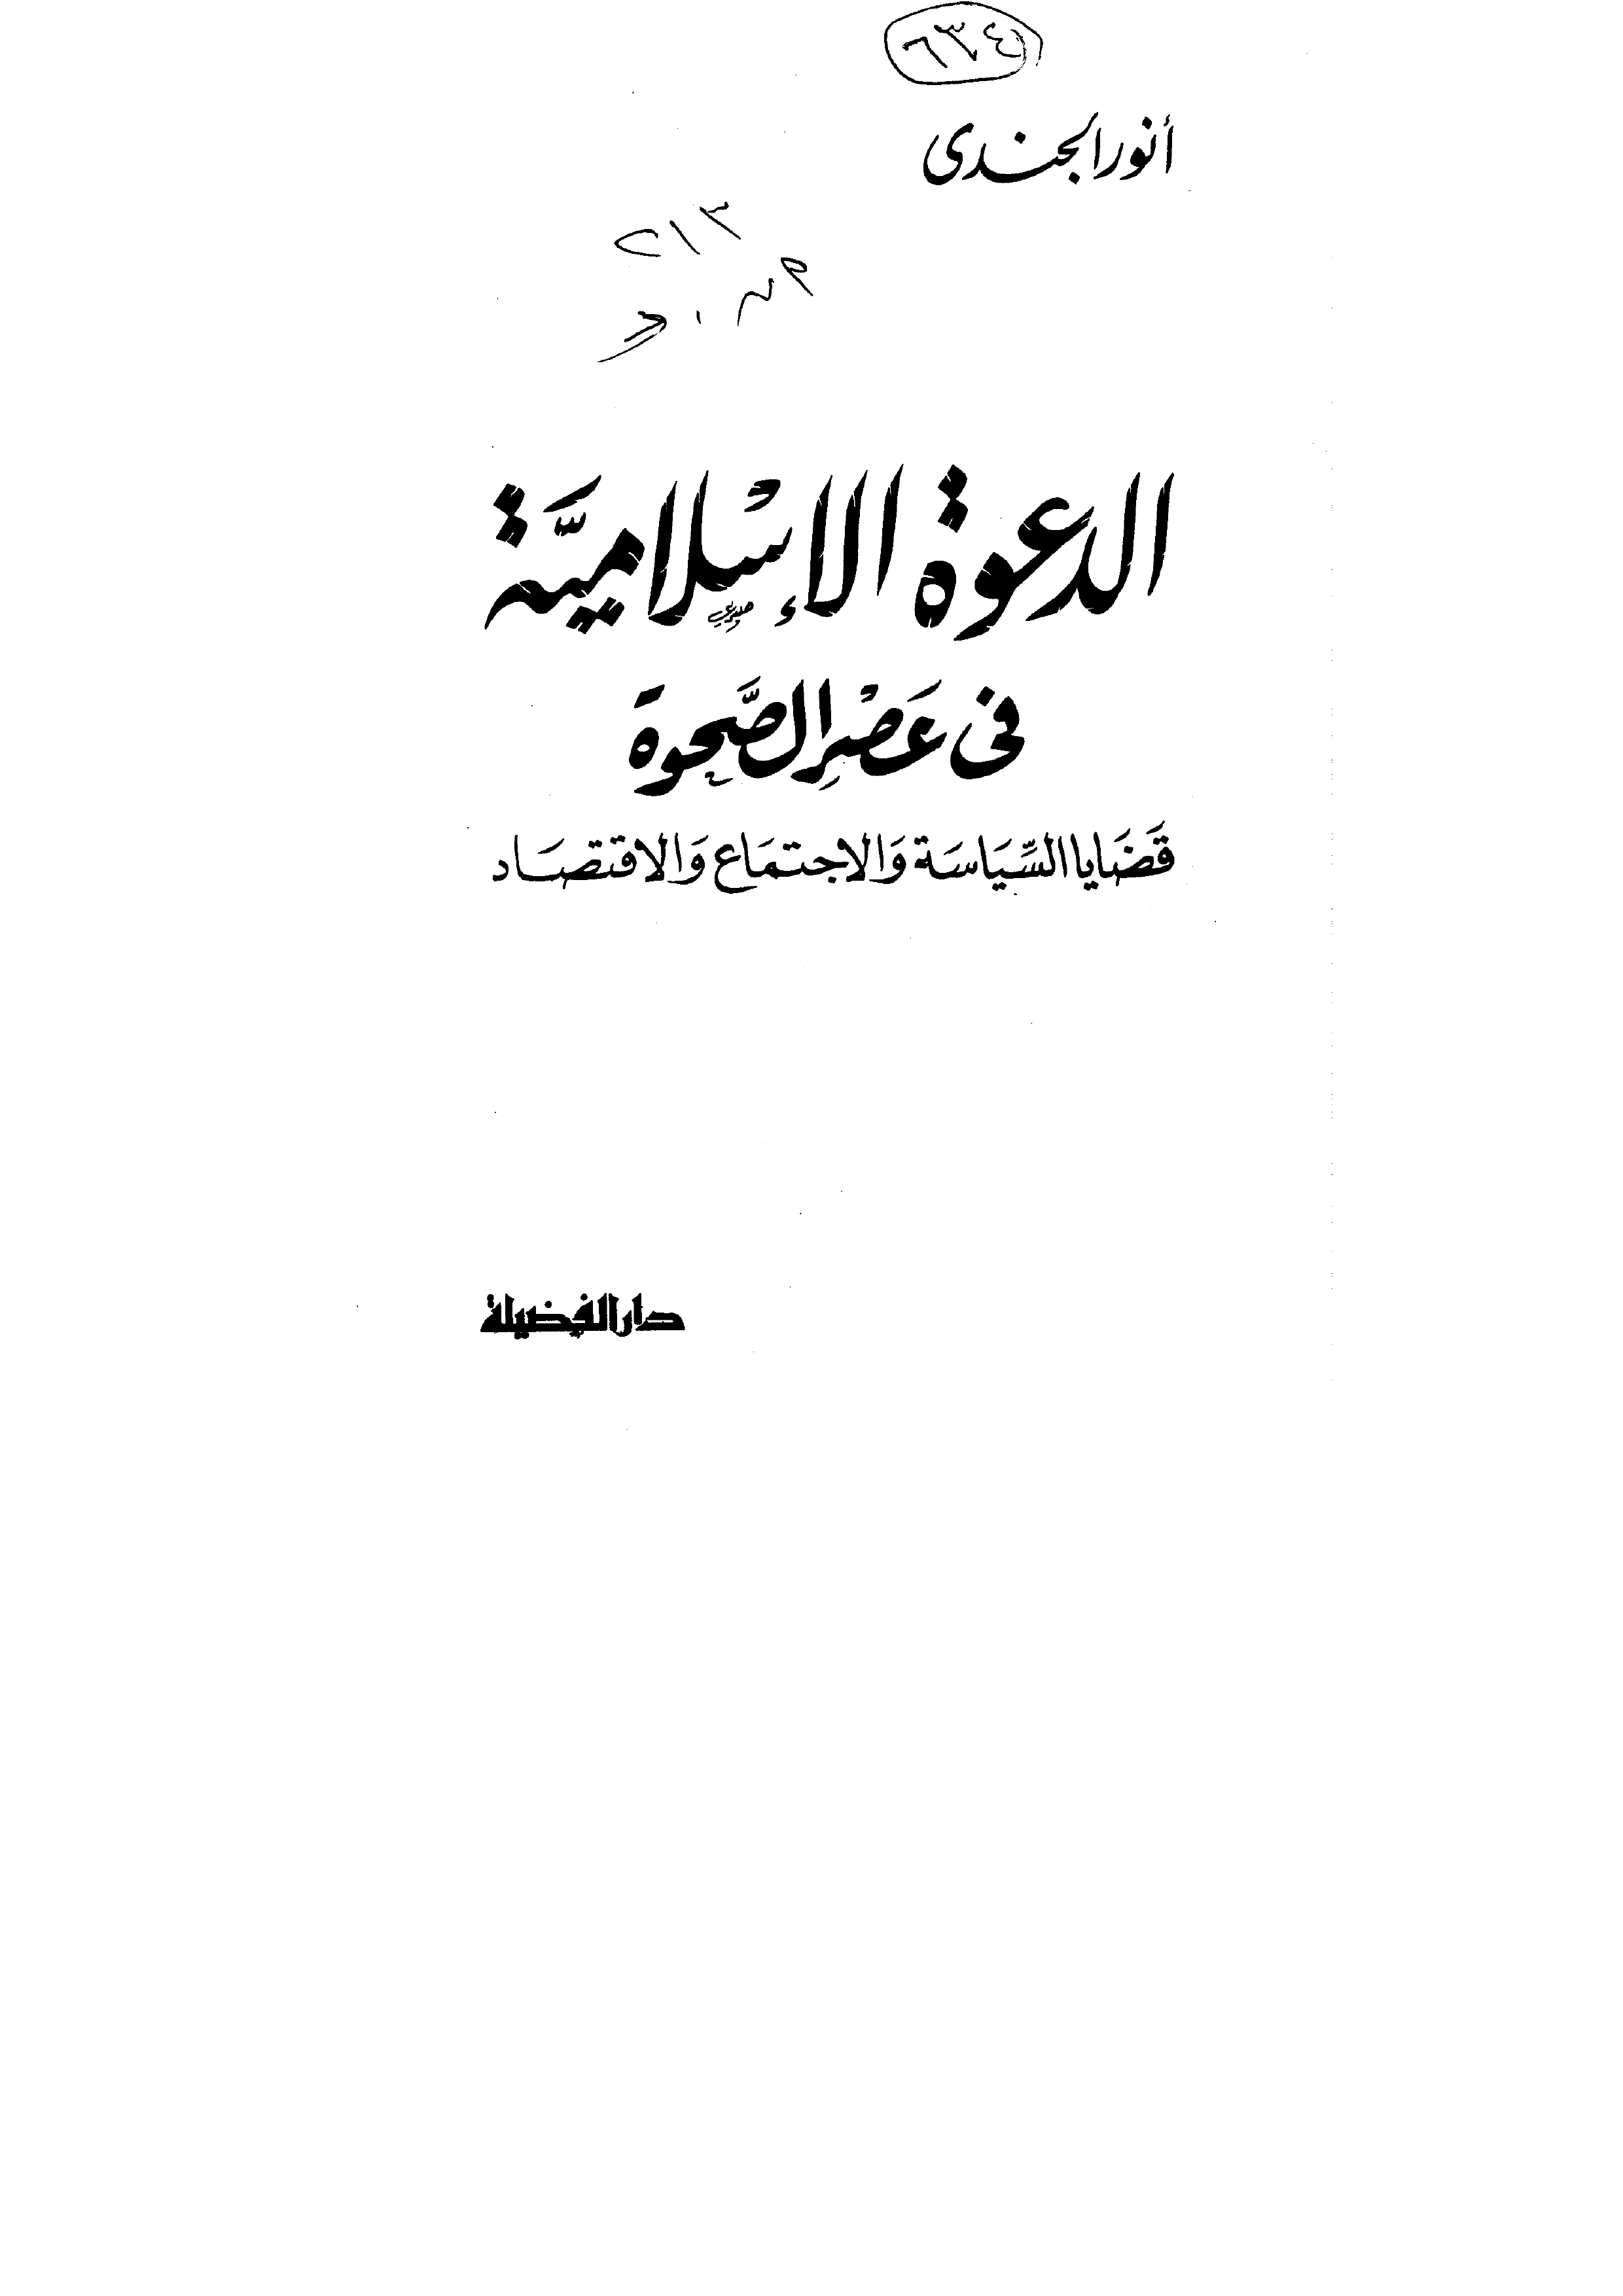 ٦٣٤
أنور الجندى
٢١٣
الدعوة الإسْلاميَّة
فى عَصْرِ الصَّحوة
قَضَايا السِّيَاسَة وَالاجتمَاع وَالاقتصَاد
دار الفضيلة